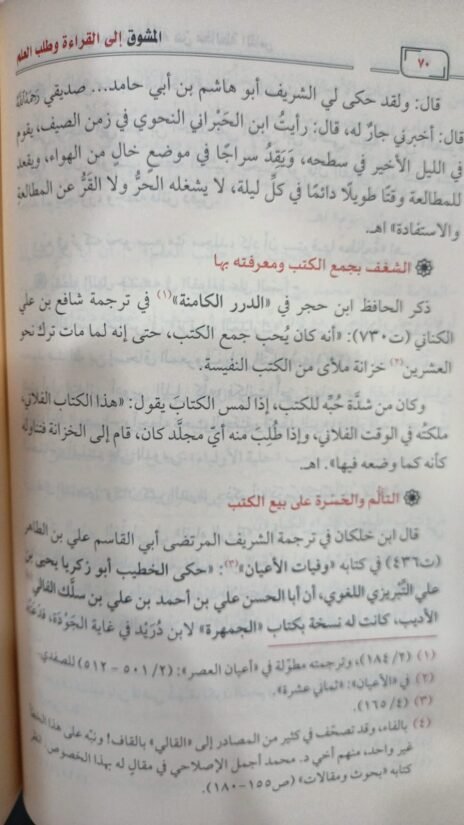 المشوق إلى القراءة وطلب العلم
٧٠
قال: ولقد حكى لي الشريف أبو هاشم بن أبي حامد... صديقي رَحِمَهُ اللَّهُ
قال: أخبرني جارٌ له، قال: رأيتُ ابن الحَبْراني النحوي في زمن الصيف، يقوم
في الليل الأخير في سطحه، وَيَقِدُ سراجًا في موضعٍ خالٍ من الهواء، ويقعد
للمطالعة وقتًا طويلًا دائمًا في كلِّ ليلة، لا يشغله الحرُّ ولا القَرُّ عن المطالعة
والاستفادة» اهـ.
الشغف بجمع الكتب ومعرفته بها
ذكر الحافظ ابن حجر في «الدرر الكامنة»(١) في ترجمة شافع بن علي
الكناني (ت٧٣٠): «أنه كان يُحب جمع الكتب، حتى إنه لما مات ترك نحو
العشرين(٢) خزانة ملأى من الكتب النفيسة.
وكان من شدَّة حُبِّه للكتب، إذا لمس الكتابَ يقول: «هذا الكتاب الفلاني،
ملكته في الوقت الفلاني، وإذا طُلب منه أيَّ مجلَّد كان، قام إلى الخزانة فتناوله
كأنه كما وضعه فيها». اهـ.
التألُّم والحَسْرة على بيع الكتب
قال ابن خلكان في ترجمة الشريف المرتضى أبي القاسم علي بن الطاهر
(ت٤٣٦) في كتابه «وفيات الأعيان»(٣): «حكى الخطيب أبو زكريا يحيى بن
علي التِّبْريزي اللغوي، أن أبا الحسن علي بن أحمد بن علي بن سلَّك الفالي(٤)
الأديب، كانت له نسخة بكتاب «الجمهرة» لابن دُرَيد في غاية الجَوْدة، فدعَتْهُ
(١) (٢/ ١٨٤)، وترجمته مطوّلة في «أعيان العصر»: (٢/ ٥٠١ - ٥١٢) للصفدي.
(٢) في «الأعيان»: «ثماني عشرة».
(٣) (٤/ ١٦٥).
(٤) بالفاء، وقد تصحّف في كثير من المصادر إلى «القالي» بالقاف! ونبّه على هذا الخطأ
غير واحد، منهم أخي د. محمد أجمل الإصلاحي في مقال له بهذا الخصوص. انظر
كتابه «بحوث ومقالات» (ص١٥٥-١٨٠).